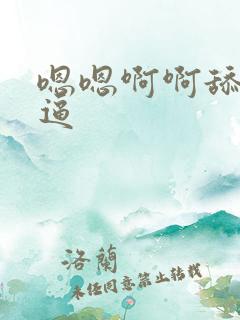 嗯嗯啊啊舔
逼
洛蘭
未经同意禁止转载